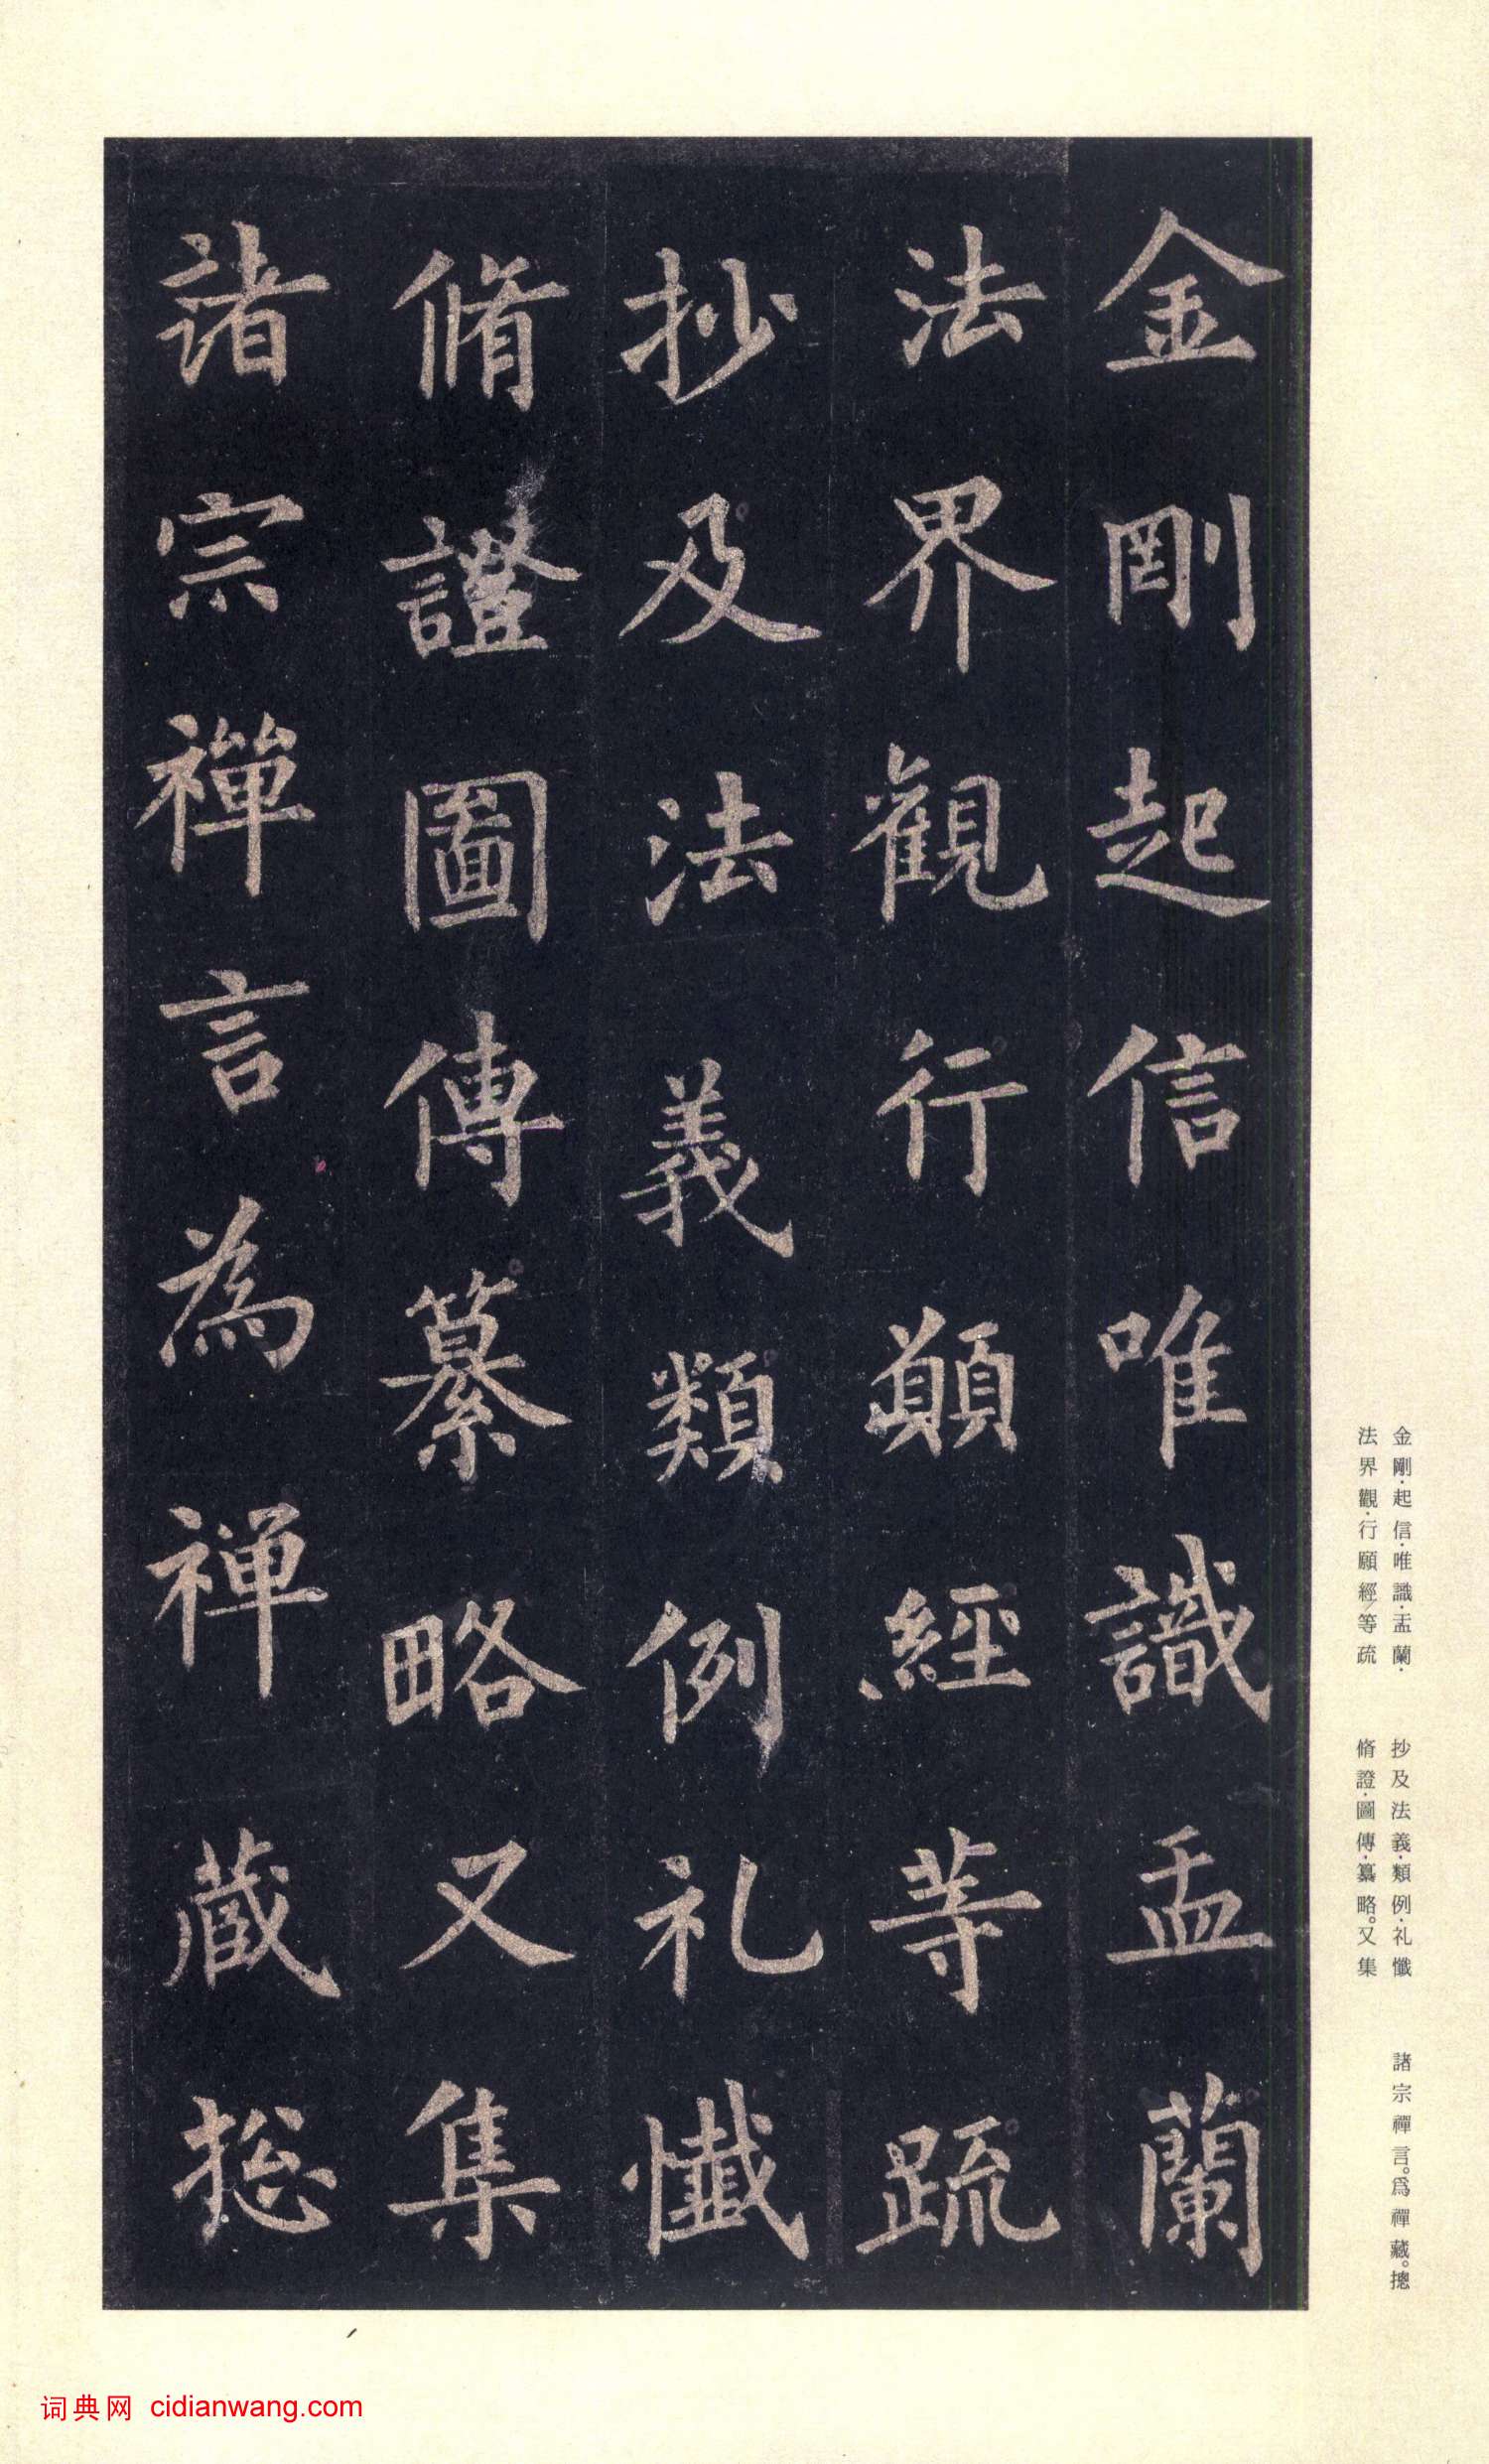 金剛起信唯識盂蘭
法界觀行願經等䟽
抄及法義類例礼懺
脩證圖傳纂略又集
諸宗禪言為禪藏揔
金剛·起信·唯識·盂蘭·
法界觀·行願經等疏
抄及法義·類例·礼懺
脩證·圖傳·纂略。又集
諸宗禪言。爲禪藏。摠
词典网 cidianwang.com